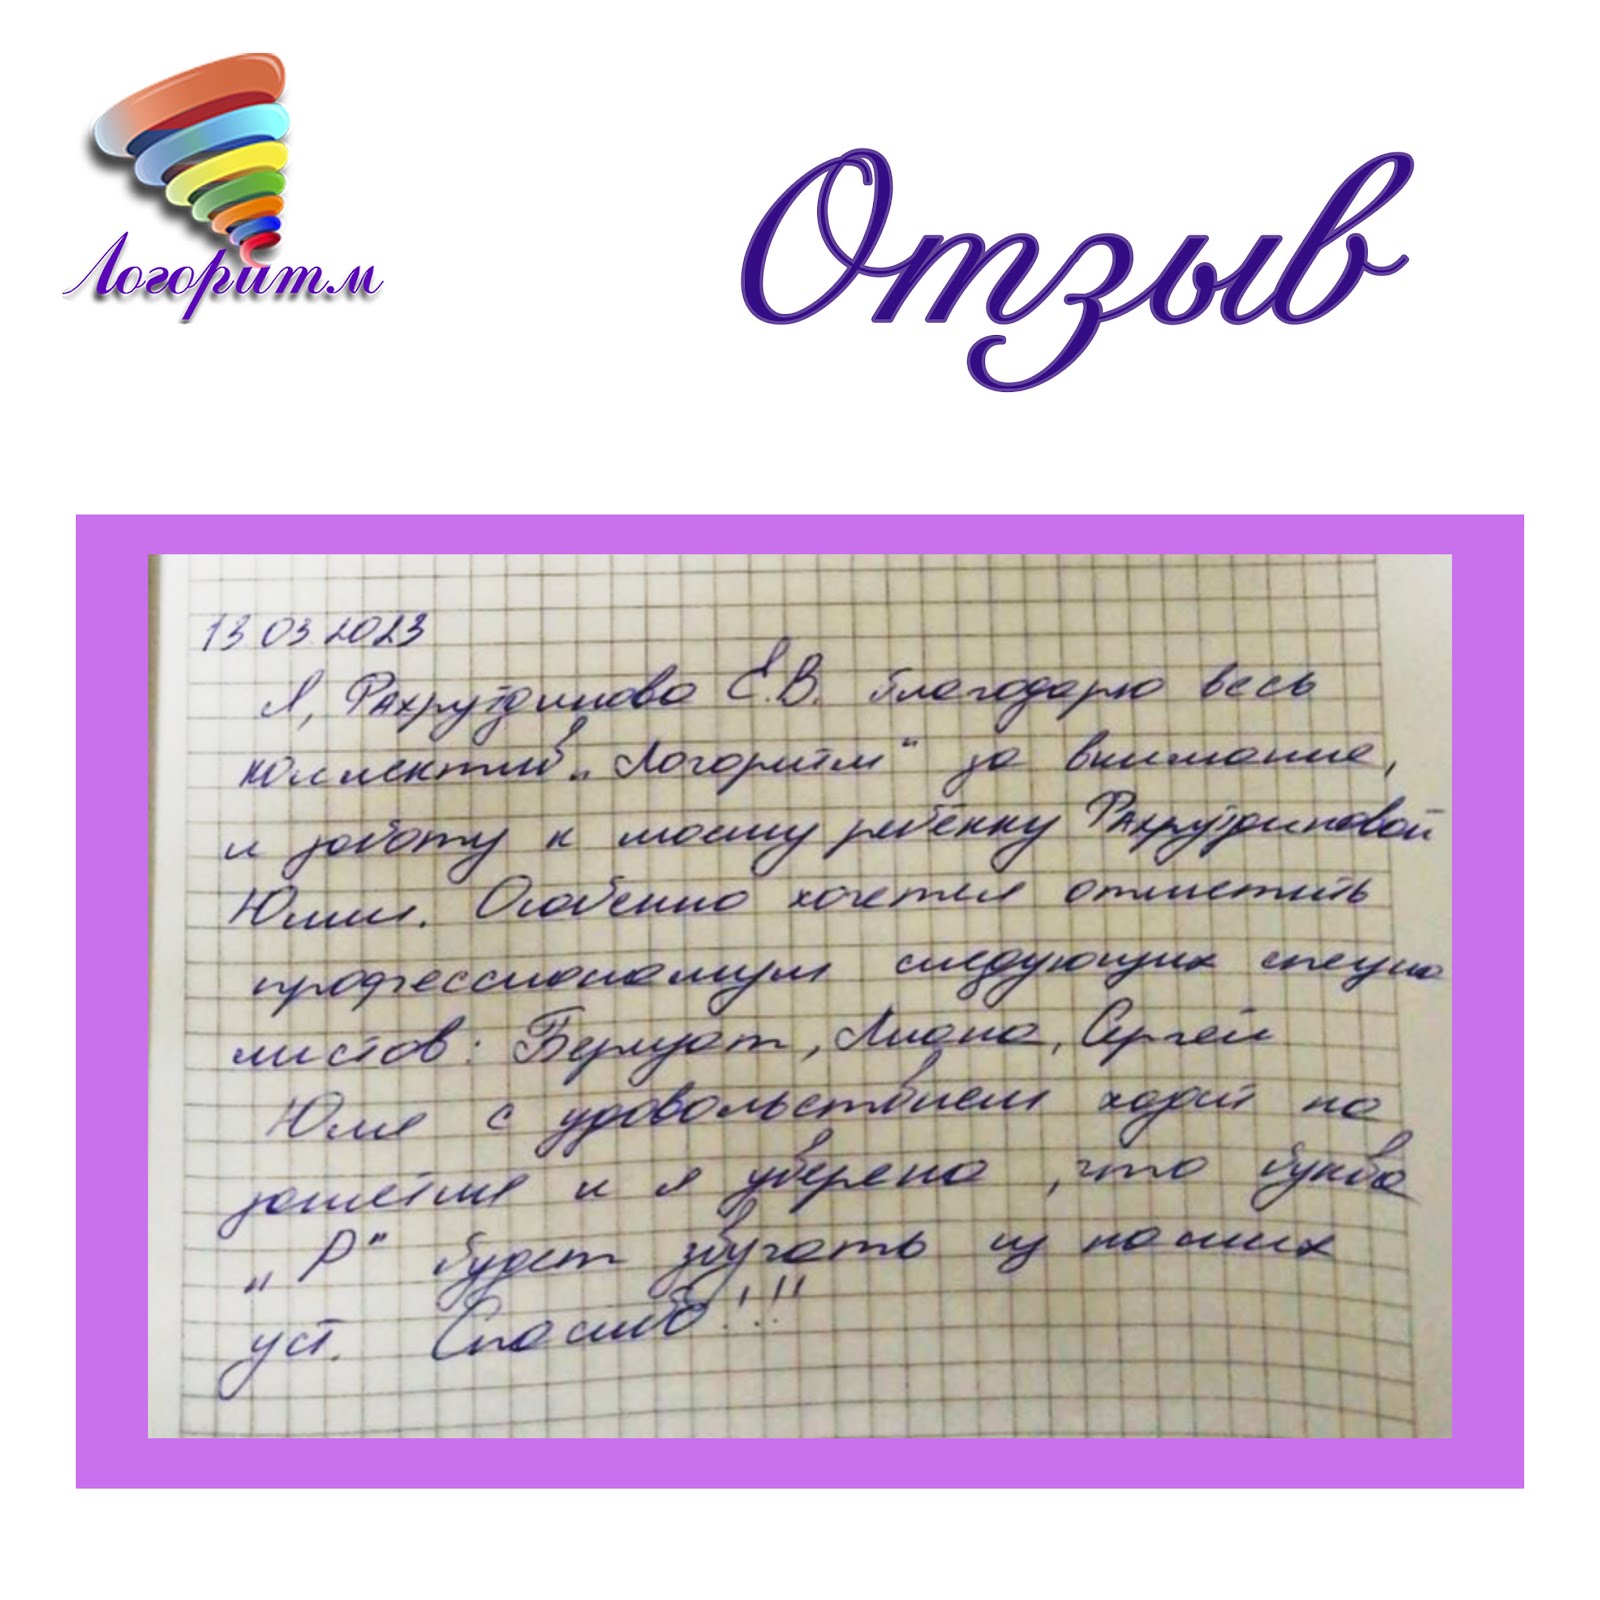 Логоритм
Отзыв
13.03.2023
Я, Фахрутдинова Е.В. благодарю весь
коллектив „Логоритм“ за внимание,
и заботу к моему ребёнку Фахрутдиновой
Юлии. Особенно хочется отметить
профессионализм следующих специа
листов: Бермет, Лиана, Сергей
Юля с удовольствием ходит на
занятия и я уверена, что буква
„Р“ будет звучать из наших
уст. Спасибо!!!